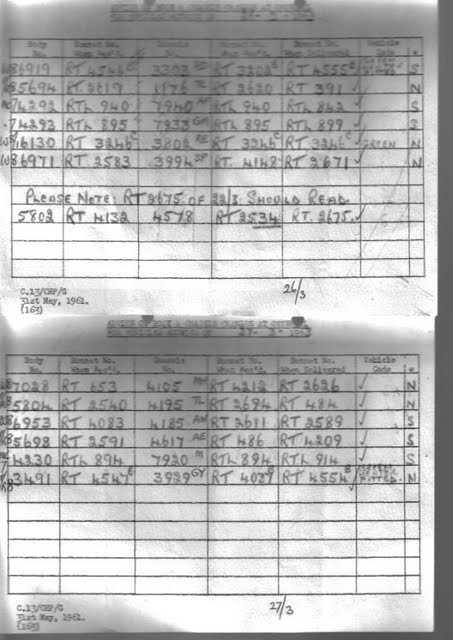 ADVICE OF BODY & CHASSIS CHANGES AT
26-3-
Body No. Bonnet No. When Rec'd. Chassis No. Bonnet No. When Rec'd. Bonnet No. When Delivered Vehicle Code *
W8 6919 RT 4546C 3303 RT 3202C RT 4555C S
8 5694 RT 2619 1176 TE RT 2620 RT 391 ✓ N
74292 RTL 940 7940 AF RTL 940 RTL 842 ✓ S
74293 RTL 895 7933 GM RTL 895 RTL 899 ✓ S
W8 16130 RT 3246C 3802 RE RT 3246C RT 3246C ✓ GREEN N
W8 6971 RT 2583 3994 SP RT 4148 RT 2671 ✓ N
PLEASE NOTE: RT 2675 OF 22/3 SHOULD READ
5802 RT 4132 4578 RT 2534 RT. 2675 ✓
C.13/CHP/G
31st May, 1961.
(163)
26/3
ADVICE OF BODY & CHASSIS CHANGES AT
27-3-
Body No. Bonnet No. When Rec'd. Chassis No. Bonnet No. When Rec'd. Bonnet No. When Delivered Vehicle Code *
7028 RT 653 4105 MH RT 4212 RT 2626 ✓ N
5804 RT 2540 4195 TL RT 2694 RT 484 ✓ N
6953 RT 4083 4185 AW RT 2611 RT 2589 ✓ S
5698 RT 2591 4617 AE RT 486 RT 4209 ✓ S
4230 RTL 894 7920 M RTL 894 RTL 914 ✓ S
3491 RT 4547C 3929 GY RT 4554 N
C.13/CHP/G
31st May, 1961.
(163)
27/3